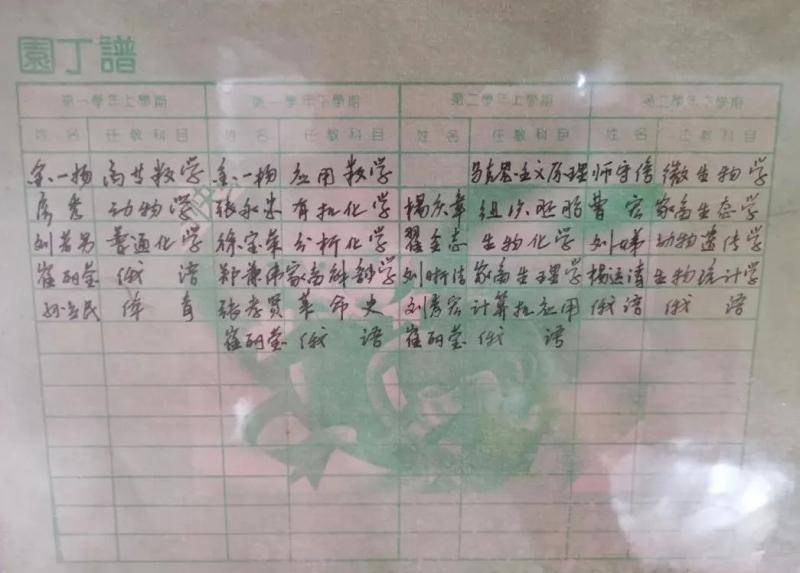 園丁譜
第一學年上學期 第一學年下學期 第二學年上學期 第二學年下學期
姓名 任教科目 姓名 任教科目 姓名 任教科目 姓名 任教科目
一扬 高等数学 一扬 应用数学 马克思主义原理 师守信 微生物学
动物学 张永忠 有机化学 杨庆章 组织胚胎 曹宏 家畜生态学
刘若男 普通化学 徐宝荣 分析化学 翟全志 生物化学 刘娣 动物遗传学
崔丽莹 俄语 郑兼伟 家畜解剖学 刘昕洁 家畜生理学 杨运清 生物统计学
民 体育 张孝贤 革命史 刘彦宏 计算机应用 俄语 俄语
崔丽莹 俄语 崔丽莹 俄语